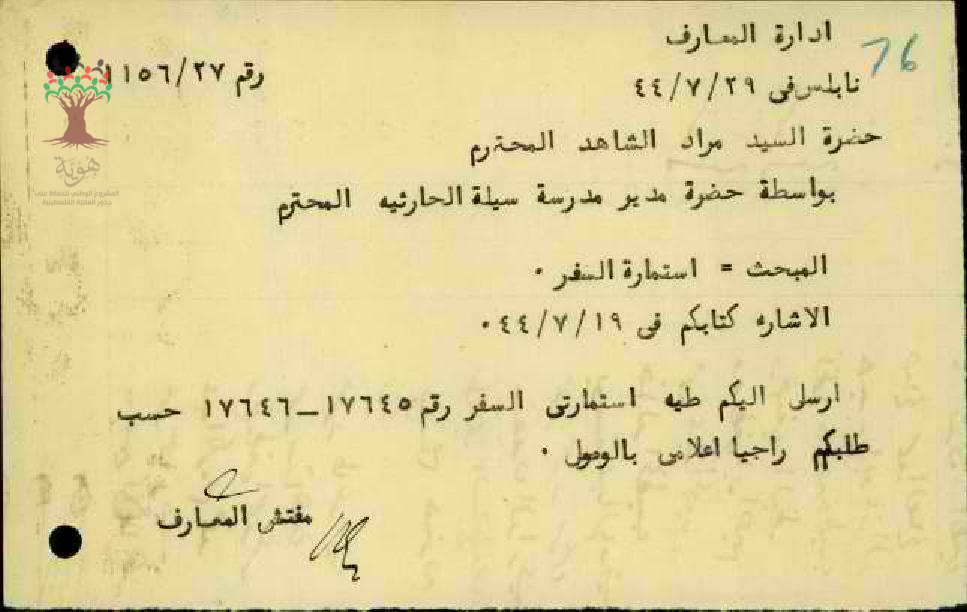 76
ادارة المعارف
نابلس في ٢٩/٧/٤٤
رقم ١١٥٦/٢٧
حضرة السيد مراد الشاهد المحترم
بواسطة حضرة مدير مدرسة سيلة الحارثيه المحترم
المبحث = استمارة السفر ٠
الاشاره كتابكم في ١٩/٧/٤٤٠
ارسل اليكم طيه استمارتي السفر رقم ١٧٦٤٥_١٧٦٤٦ حسب
طلبكم راجيا اعلامي بالوصول ٠
مفتش المعارف
هوية
المشروع الوطني للحفاظ على
جذور العائلة الفلسطينية